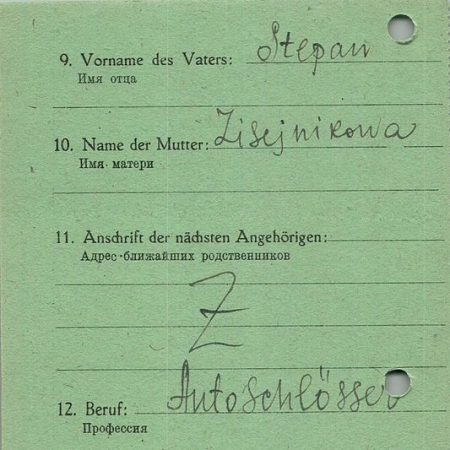 9. Vorname des Vaters: Stepan
Имя отца
10. Name der Mutter: Lisejnikowa
Имя матери
11. Anschrift der nächsten Angehörigen:
Адрес ближайших родственников
Z
12. Beruf: Autoschlösser
Профессия